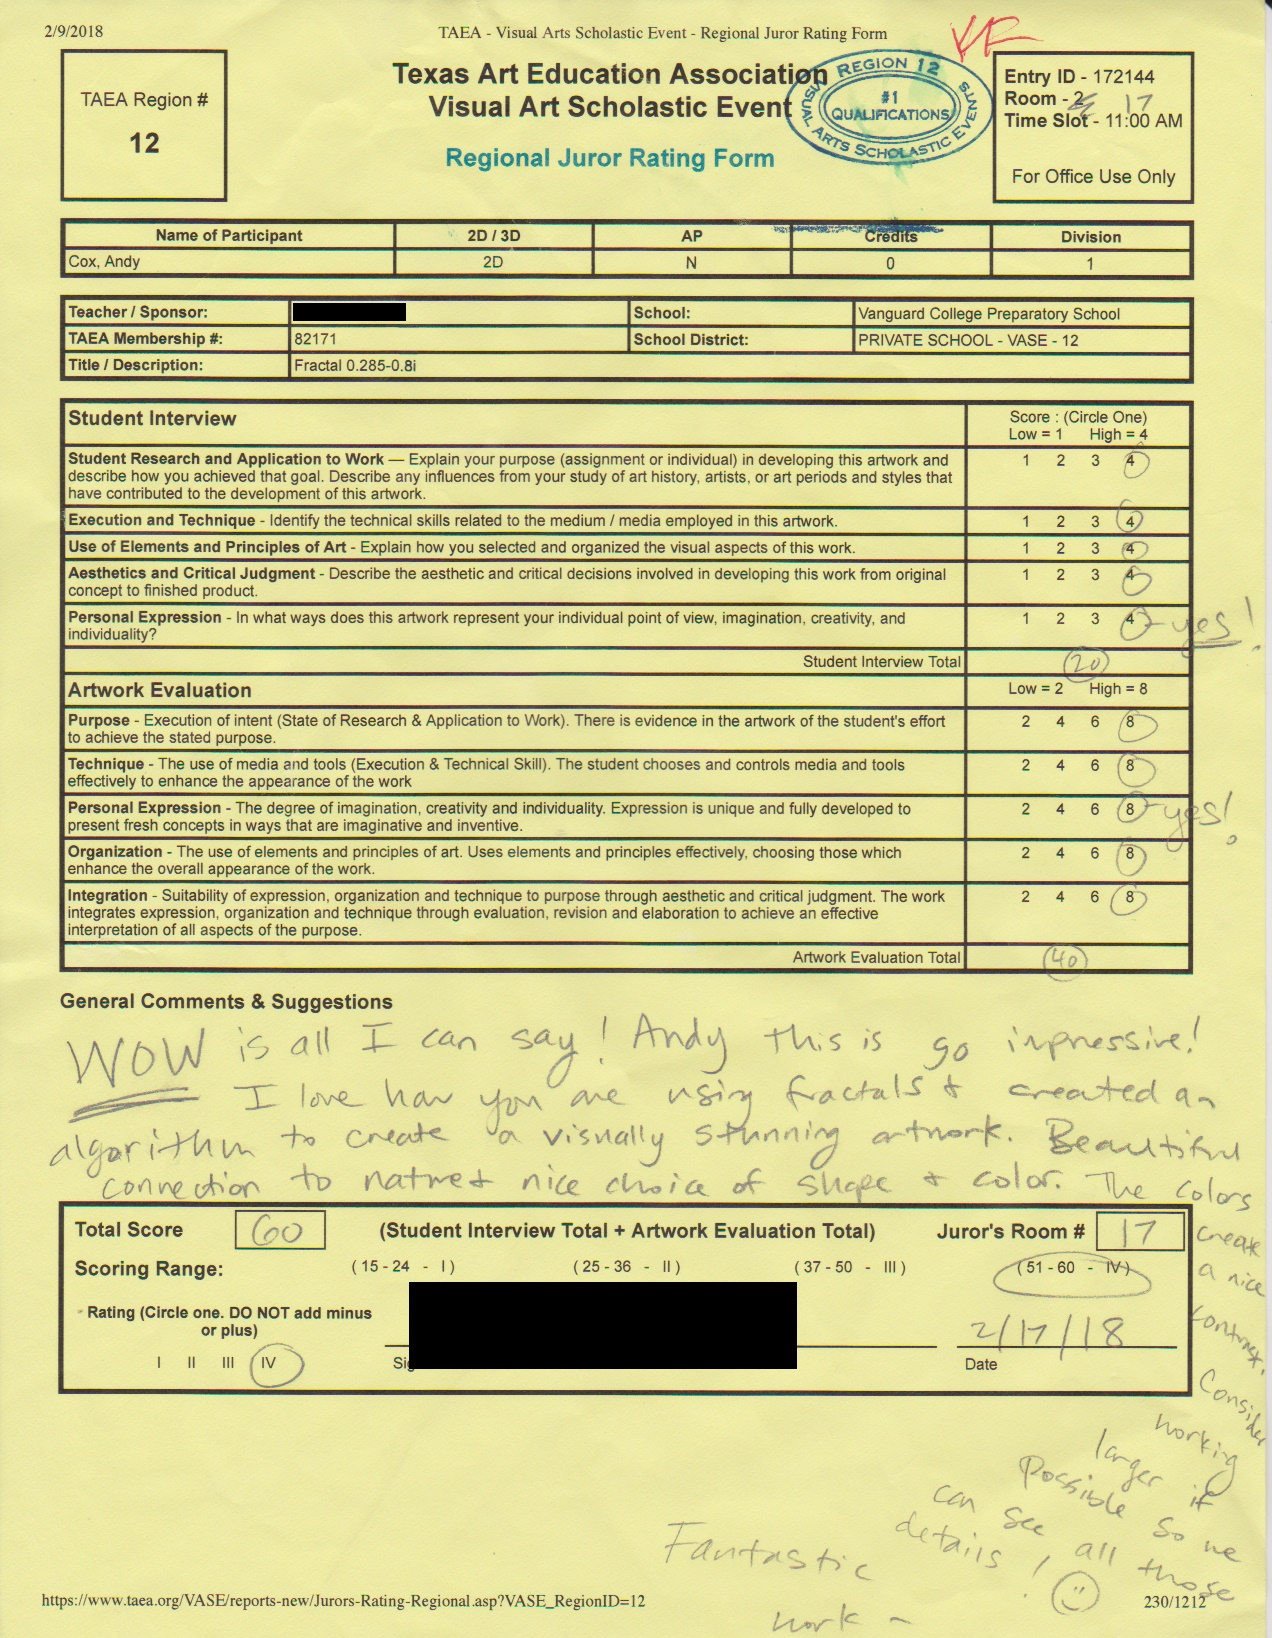 2/9/2018
TAEA - Visual Arts Scholastic Event - Regional Juror Rating Form
VR
TAEA Region #
12
Texas Art Education Association
Visual Art Scholastic Event
Regional Juror Rating Form
REGION 12
#1
QUALIFICATIONS
VISUAL ARTS SCHOLASTIC EVENTS
Entry ID - 172144
Room - 2 17
Time Slot - 11:00 AM
For Office Use Only
Name of Participant 2D / 3D AP Credits Division
Cox, Andy 2D N 0 1
Teacher / Sponsor: School: Vanguard College Preparatory School
TAEA Membership #: 82171 School District: PRIVATE SCHOOL - VASE - 12
Title / Description: Fractal 0.285-0.8i
Student Interview Score : (Circle One)
Low = 1 High = 4
Student Research and Application to Work — Explain your purpose (assignment or individual) in developing this artwork and 1 2 3 4
describe how you achieved that goal. Describe any influences from your study of art history, artists, or art periods and styles that
have contributed to the development of this artwork.
Execution and Technique - Identify the technical skills related to the medium / media employed in this artwork. 1 2 3 4
Use of Elements and Principles of Art - Explain how you selected and organized the visual aspects of this work. 1 2 3 4
Aesthetics and Critical Judgment - Describe the aesthetic and critical decisions involved in developing this work from original 1 2 3 4
concept to finished product.
Personal Expression - In what ways does this artwork represent your individual point of view, imagination, creativity, and 1 2 3 4 - yes!
individuality?
Student Interview Total 20
Artwork Evaluation Low = 2 High = 8
Purpose - Execution of intent (State of Research & Application to Work). There is evidence in the artwork of the student's effort 2 4 6 8
to achieve the stated purpose.
Technique - The use of media and tools (Execution & Technical Skill). The student chooses and controls media and tools 2 4 6 8
effectively to enhance the appearance of the work
Personal Expression - The degree of imagination, creativity and individuality. Expression is unique and fully developed to 2 4 6 8 - yes!
present fresh concepts in ways that are imaginative and inventive.
Organization - The use of elements and principles of art. Uses elements and principles effectively, choosing those which 2 4 6 8
enhance the overall appearance of the work.
Integration - Suitability of expression, organization and technique to purpose through aesthetic and critical judgment. The work 2 4 6 8
integrates expression, organization and technique through evaluation, revision and elaboration to achieve an effective
interpretation of all aspects of the purpose.
Artwork Evaluation Total 40
General Comments & Suggestions
WOW is all I can say! Andy this is so impressive!
I love how you are using fractals & created an
algorithm to create a visually stunning artwork. Beautiful
connection to nature & nice choice of shape & color. The colors
create
a nice
contrast.
Consider
working
larger if
possible so we
can see all those
details!
Fantastic
work ~
Total Score 60 (Student Interview Total + Artwork Evaluation Total) Juror's Room # 17
Scoring Range: ( 15 - 24 - I ) ( 25 - 36 - II ) ( 37 - 50 - III ) ( 51 - 60 - IV )
Rating (Circle one. DO NOT add minus
or plus)
2/17/18
I II III IV Date
https://www.taea.org/VASE/reports-new/Jurors-Rating-Regional.asp?VASE_RegionID=12 230/1212